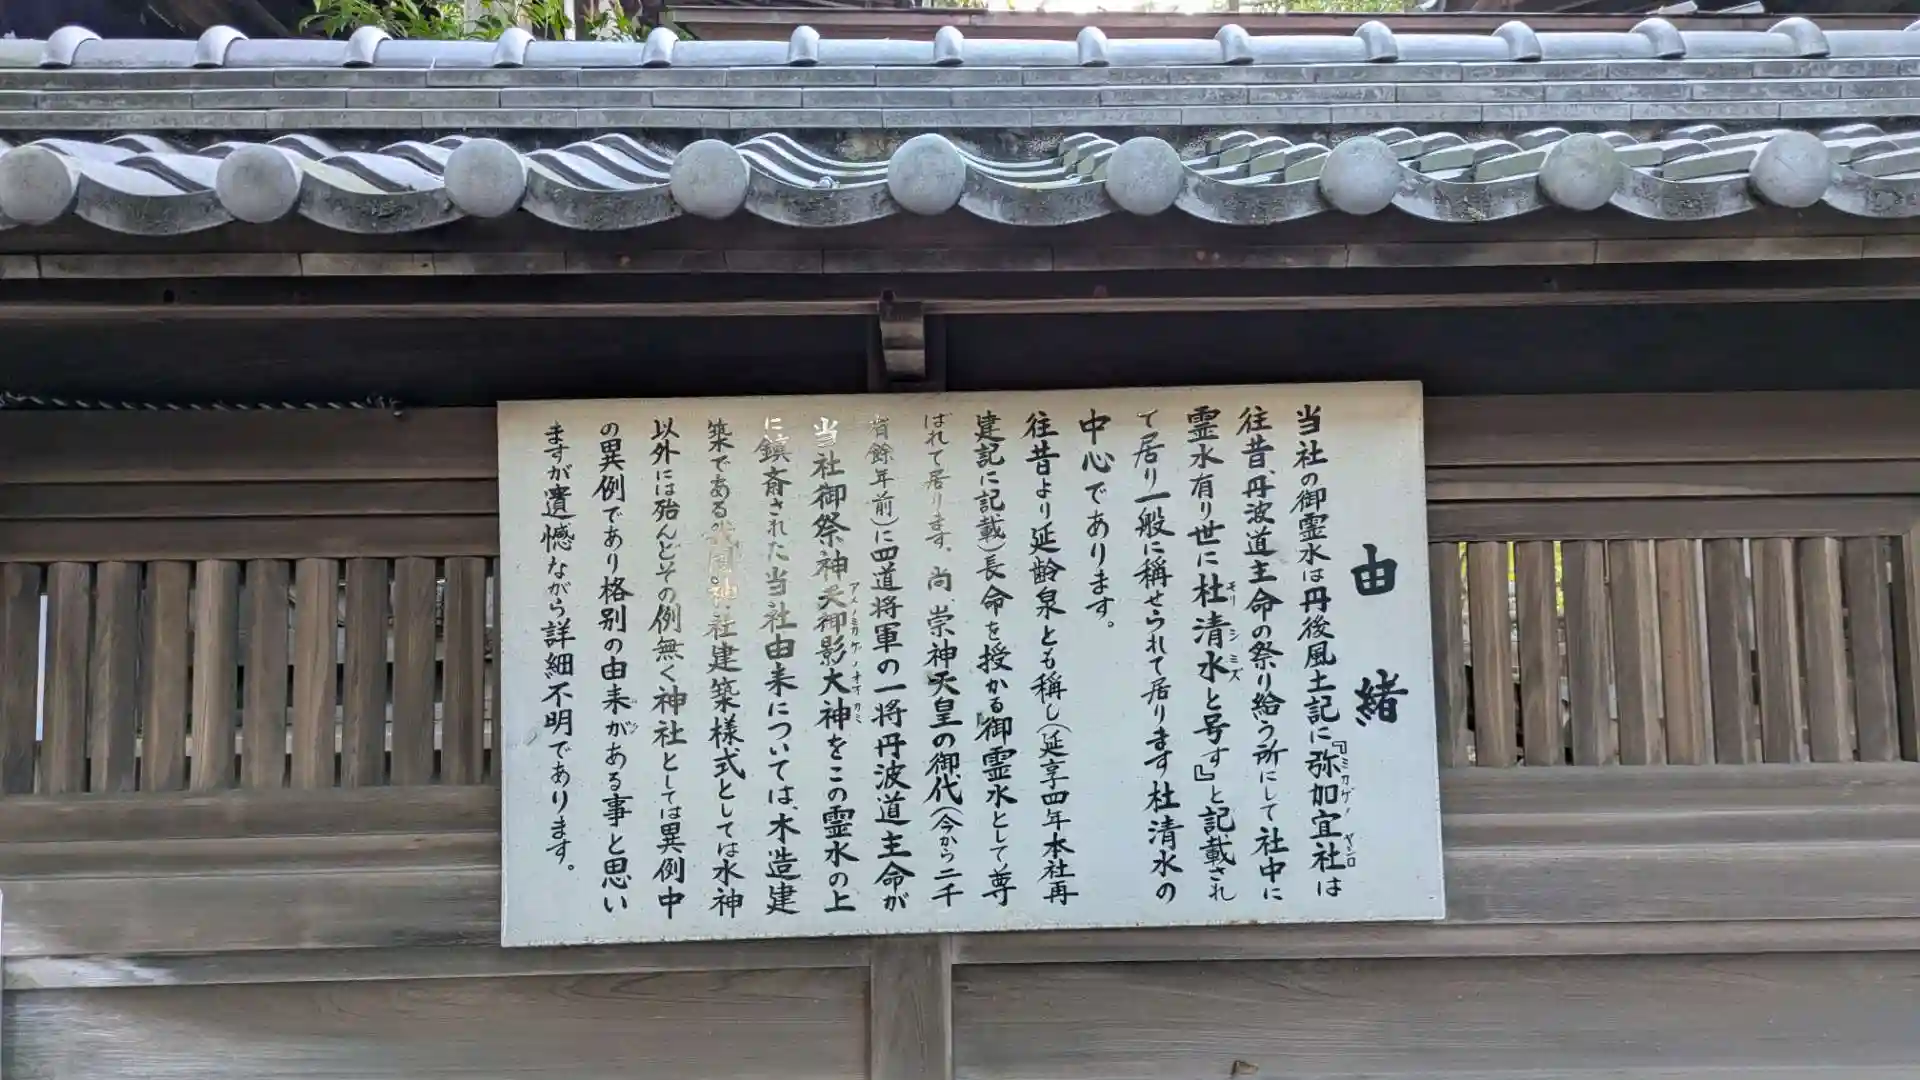 由緒
当社の御霊水は丹後風土記に『弥加宜社は
往昔、丹波道主命の祭り給う所にして社中に
霊水有り世に杜清水と号す』と記載され
て居り一般に稱せられて居ります杜清水の
中心であります。
往昔より延齢泉とも稱し(延享四年本社再
建記に記載)長命を授かる御霊水として尊
ばれて居ります。尚、崇神天皇の御代(今から二千
有餘年前)に四道将軍の一将丹波道主命が
当社御祭神天御影大神をこの霊水の上
に鎮斎された当社由来については、木造建
築である我国神社建築様式としては水神
以外には殆んどその例無く神社としては異例中
の異例であり格別の由来がある事と思い
ますが遺憾ながら詳細不明であります。